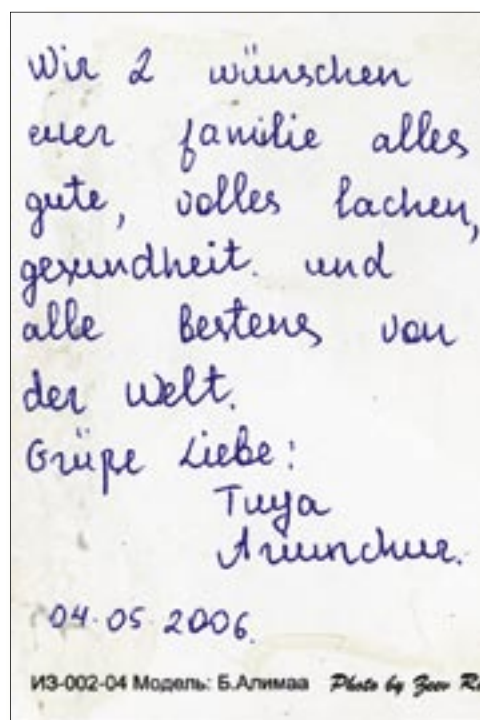 Wir 2 wünschen
euer familie alles
gute, volles lachen,
gesundheit. und
alle bestens von
der Welt.
Grüße Liebe:
Tuya
04.05.2006.
ИЗ-002-04 Модель: Б.Алимаа Photo by Zeev